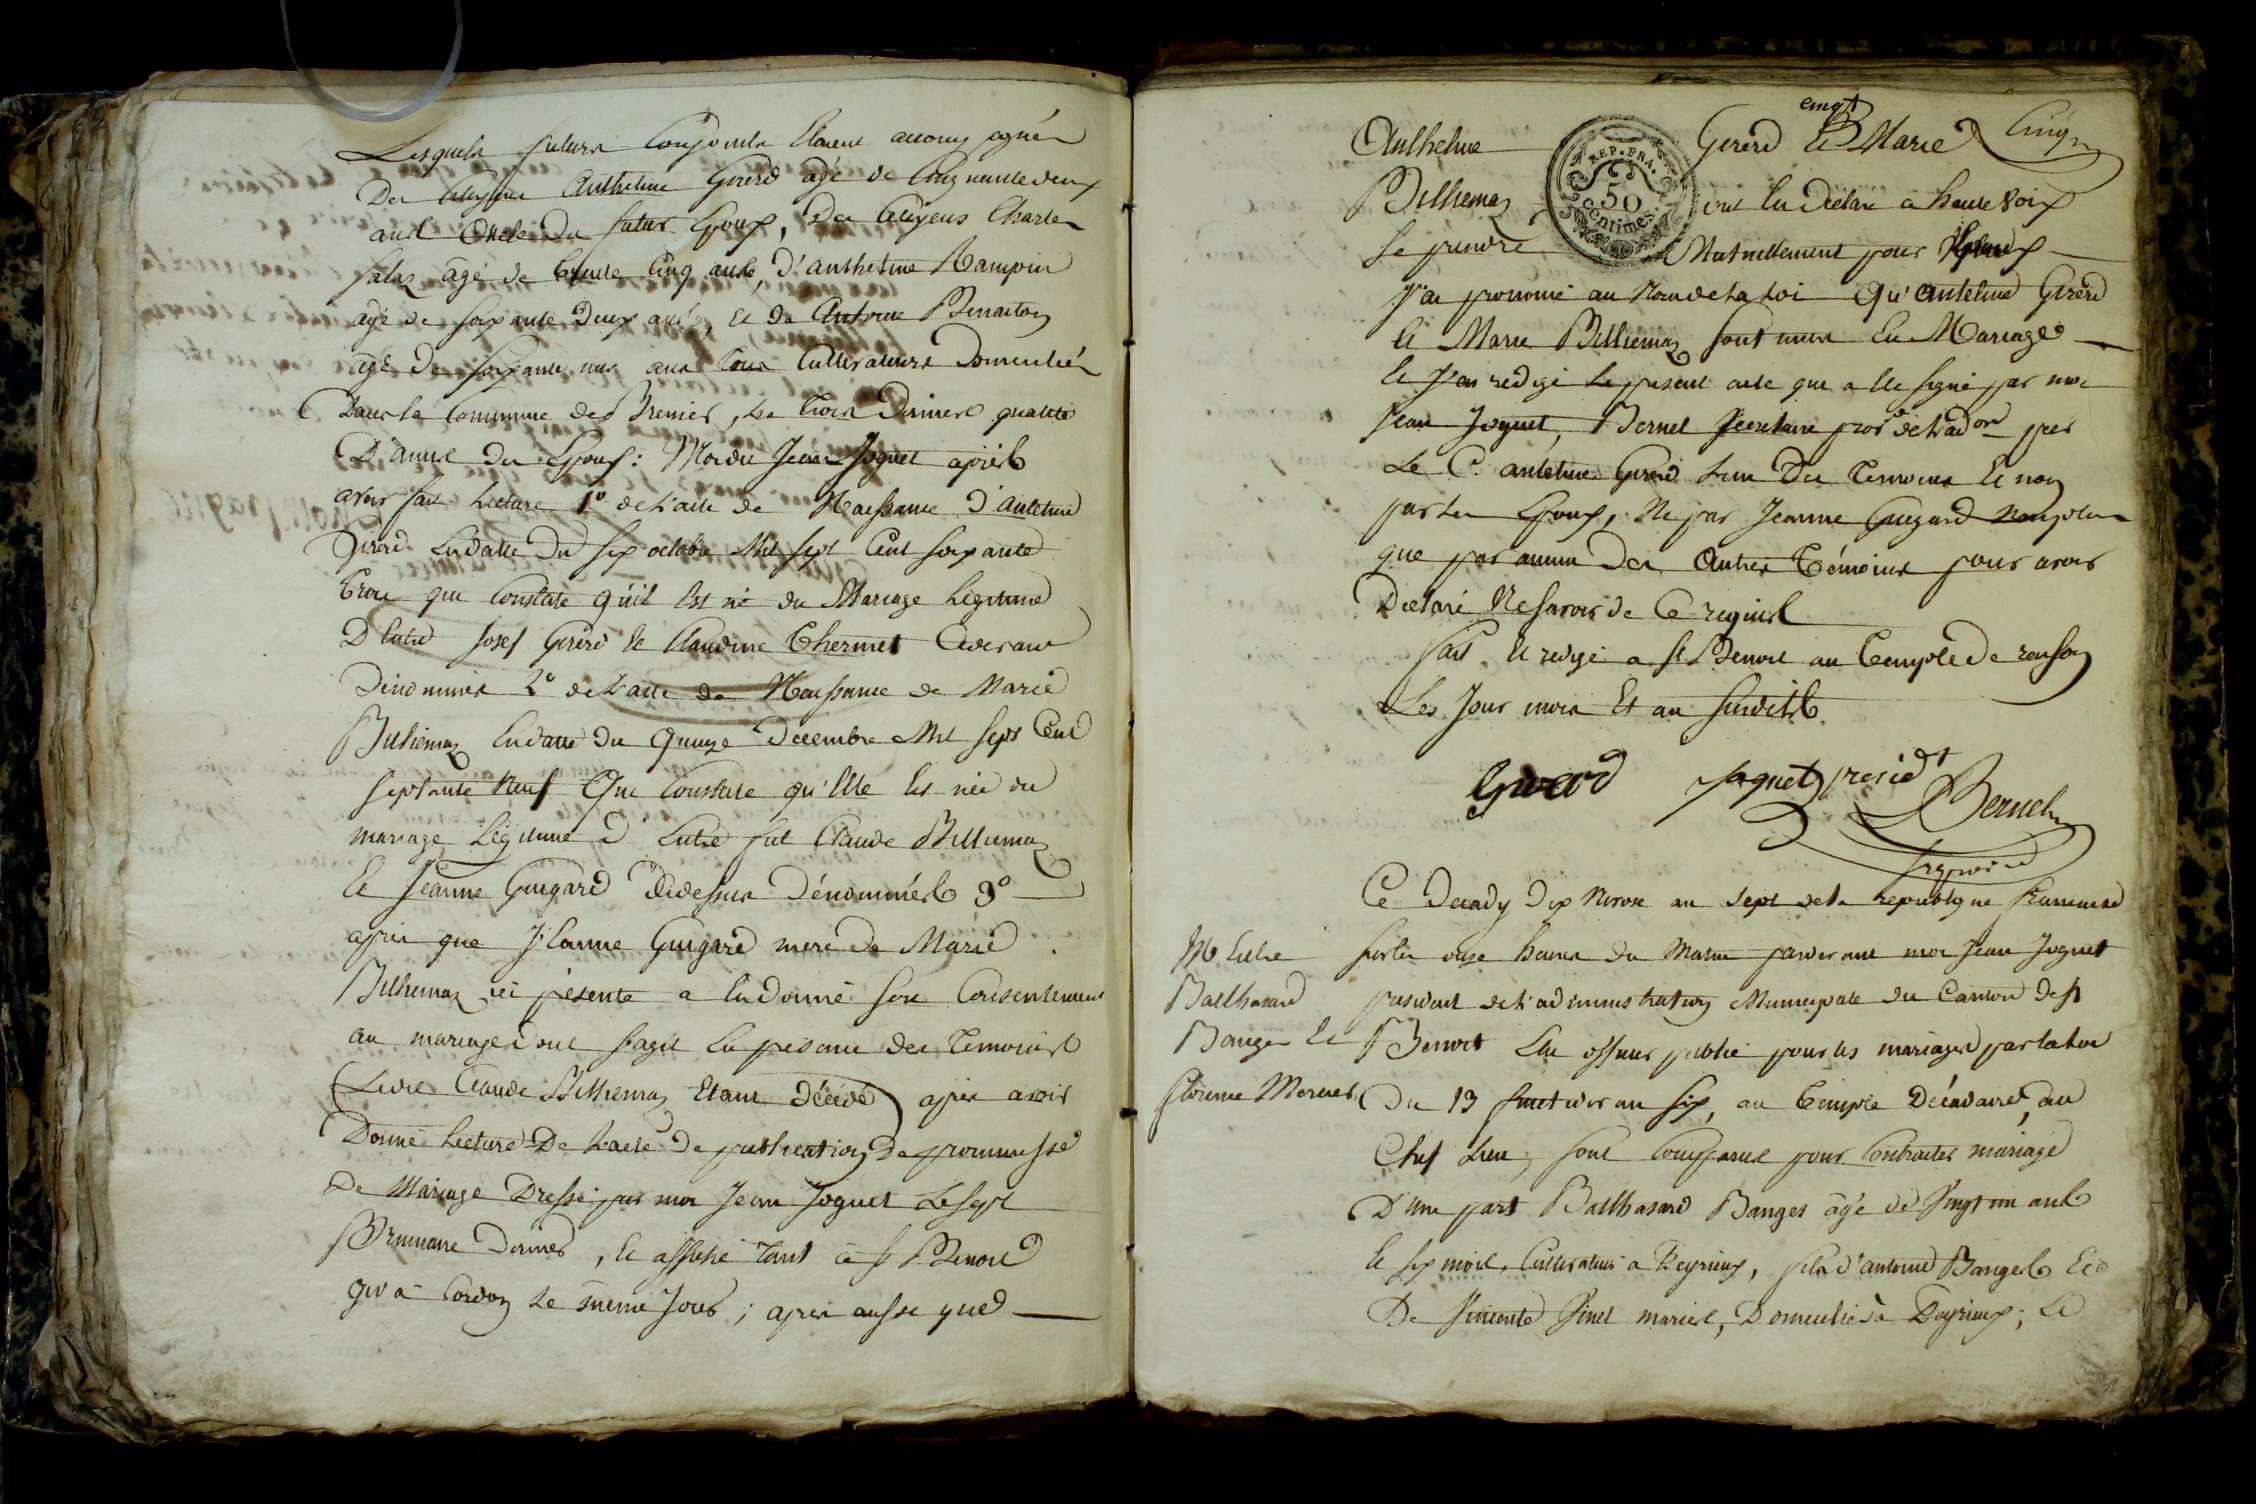 Lesquels futurs Conjoints Etoient accompagnés
Des citoyens Anthelme Girerd agé de Cinquante deux
ans Oncle du futur Epoux, des Citoyens Charles
Salaz agé de trente Cinq ans, d'anthelme Rampin
agé de soixante deux ans, et de Antoine Benaiton
agé de soixante un ans tous Cultivateurs Domiciliés
Dans la Commune de Premier, les trois Derniers qualité
D'amis du Epoux: Moidit Jean Joguet après
avoir fait Lecture 1° de l'acte de Naissance d'Antelme
Girerd Endatte du six octobre Mil sept Cent soixante
trois qui Constate qu'il Est né du Mariage Légitime
D'Entre Josef Girerd et Claudine Thermet Cidevant
Dénommés 2° de l'acte de Naissance de Marie
Billiemaz Endatte du Quinze Decembre Mil sept Cent
septante Neuf Qui Constate qu'Elle Est née du
mariage Légitime d'Entre fut Claude Billiemaz
Et Jeanne Guigard Cidessus Dénommés 3°
après que Jeanne Guigard mere de Marie
Billiemaz ici présente a Eu donné son Consentement
au mariage dont s'agit En présence des Temoins
Ledit Claude Billiemaz Etant Décédé après avoir
Donné Lecture De l'acte De publication De promesse
de Mariage Dressé par moi Jean Joguet Le sept
Brumaire Dernier, Et affiché tant à St Benoit
qu'à Cordon Le même Jour; après aussi que
Cinqt
Anthelme Girerd Et Marie Cinq
REP. FRA.
50
Centimes.
Billiemaz ont Eu Déclaré à haute Voix
Se prendre Mutuellement pour Epoux
J'ai prononcé au Nom de la Loi Qu'Antelme Girerd
Et Marie Billiemaz sont unis En Mariage
Et J'en redigé Le présent acte que a Eté signé par moi
Jean Joguet, Bernet Secretaire de l'adon par
Le C. antelme Girerd L'un Des Temoins Et non
par les Epoux, Ni par Jeanne Guigard Non plus
que par aucun Des Autres Témoins pour avoir
Declaré Ne savoir de Ce requis
Fait Et redigé a St Benoit au Temple De
Les Jour mois Et an susdits
Girerd Joguet presidt Bernet
Ce Decady Dix Nivose an Sept de la Republique Francaise
Entre
Balthasard
Banges Et
Florence Mornet
sur les onze heures du Matin pardevant moi Jean Joguet
president de l'administration Municipale du Canton de St
Benoit Elu officier public pour les mariages par la loi
Du 13 fructidor an six, au Temple Décadaire, au
Chef Lieu, sont Comparus pour Contracter mariage
D'une part Balthasard Banges agé de Vingt un ans
Et six mois, Cultivateur a Peyrieux, fils d'antoine Banges Et
De Vincente Vinet mariés, Domiciliés à Peyrieux; Et